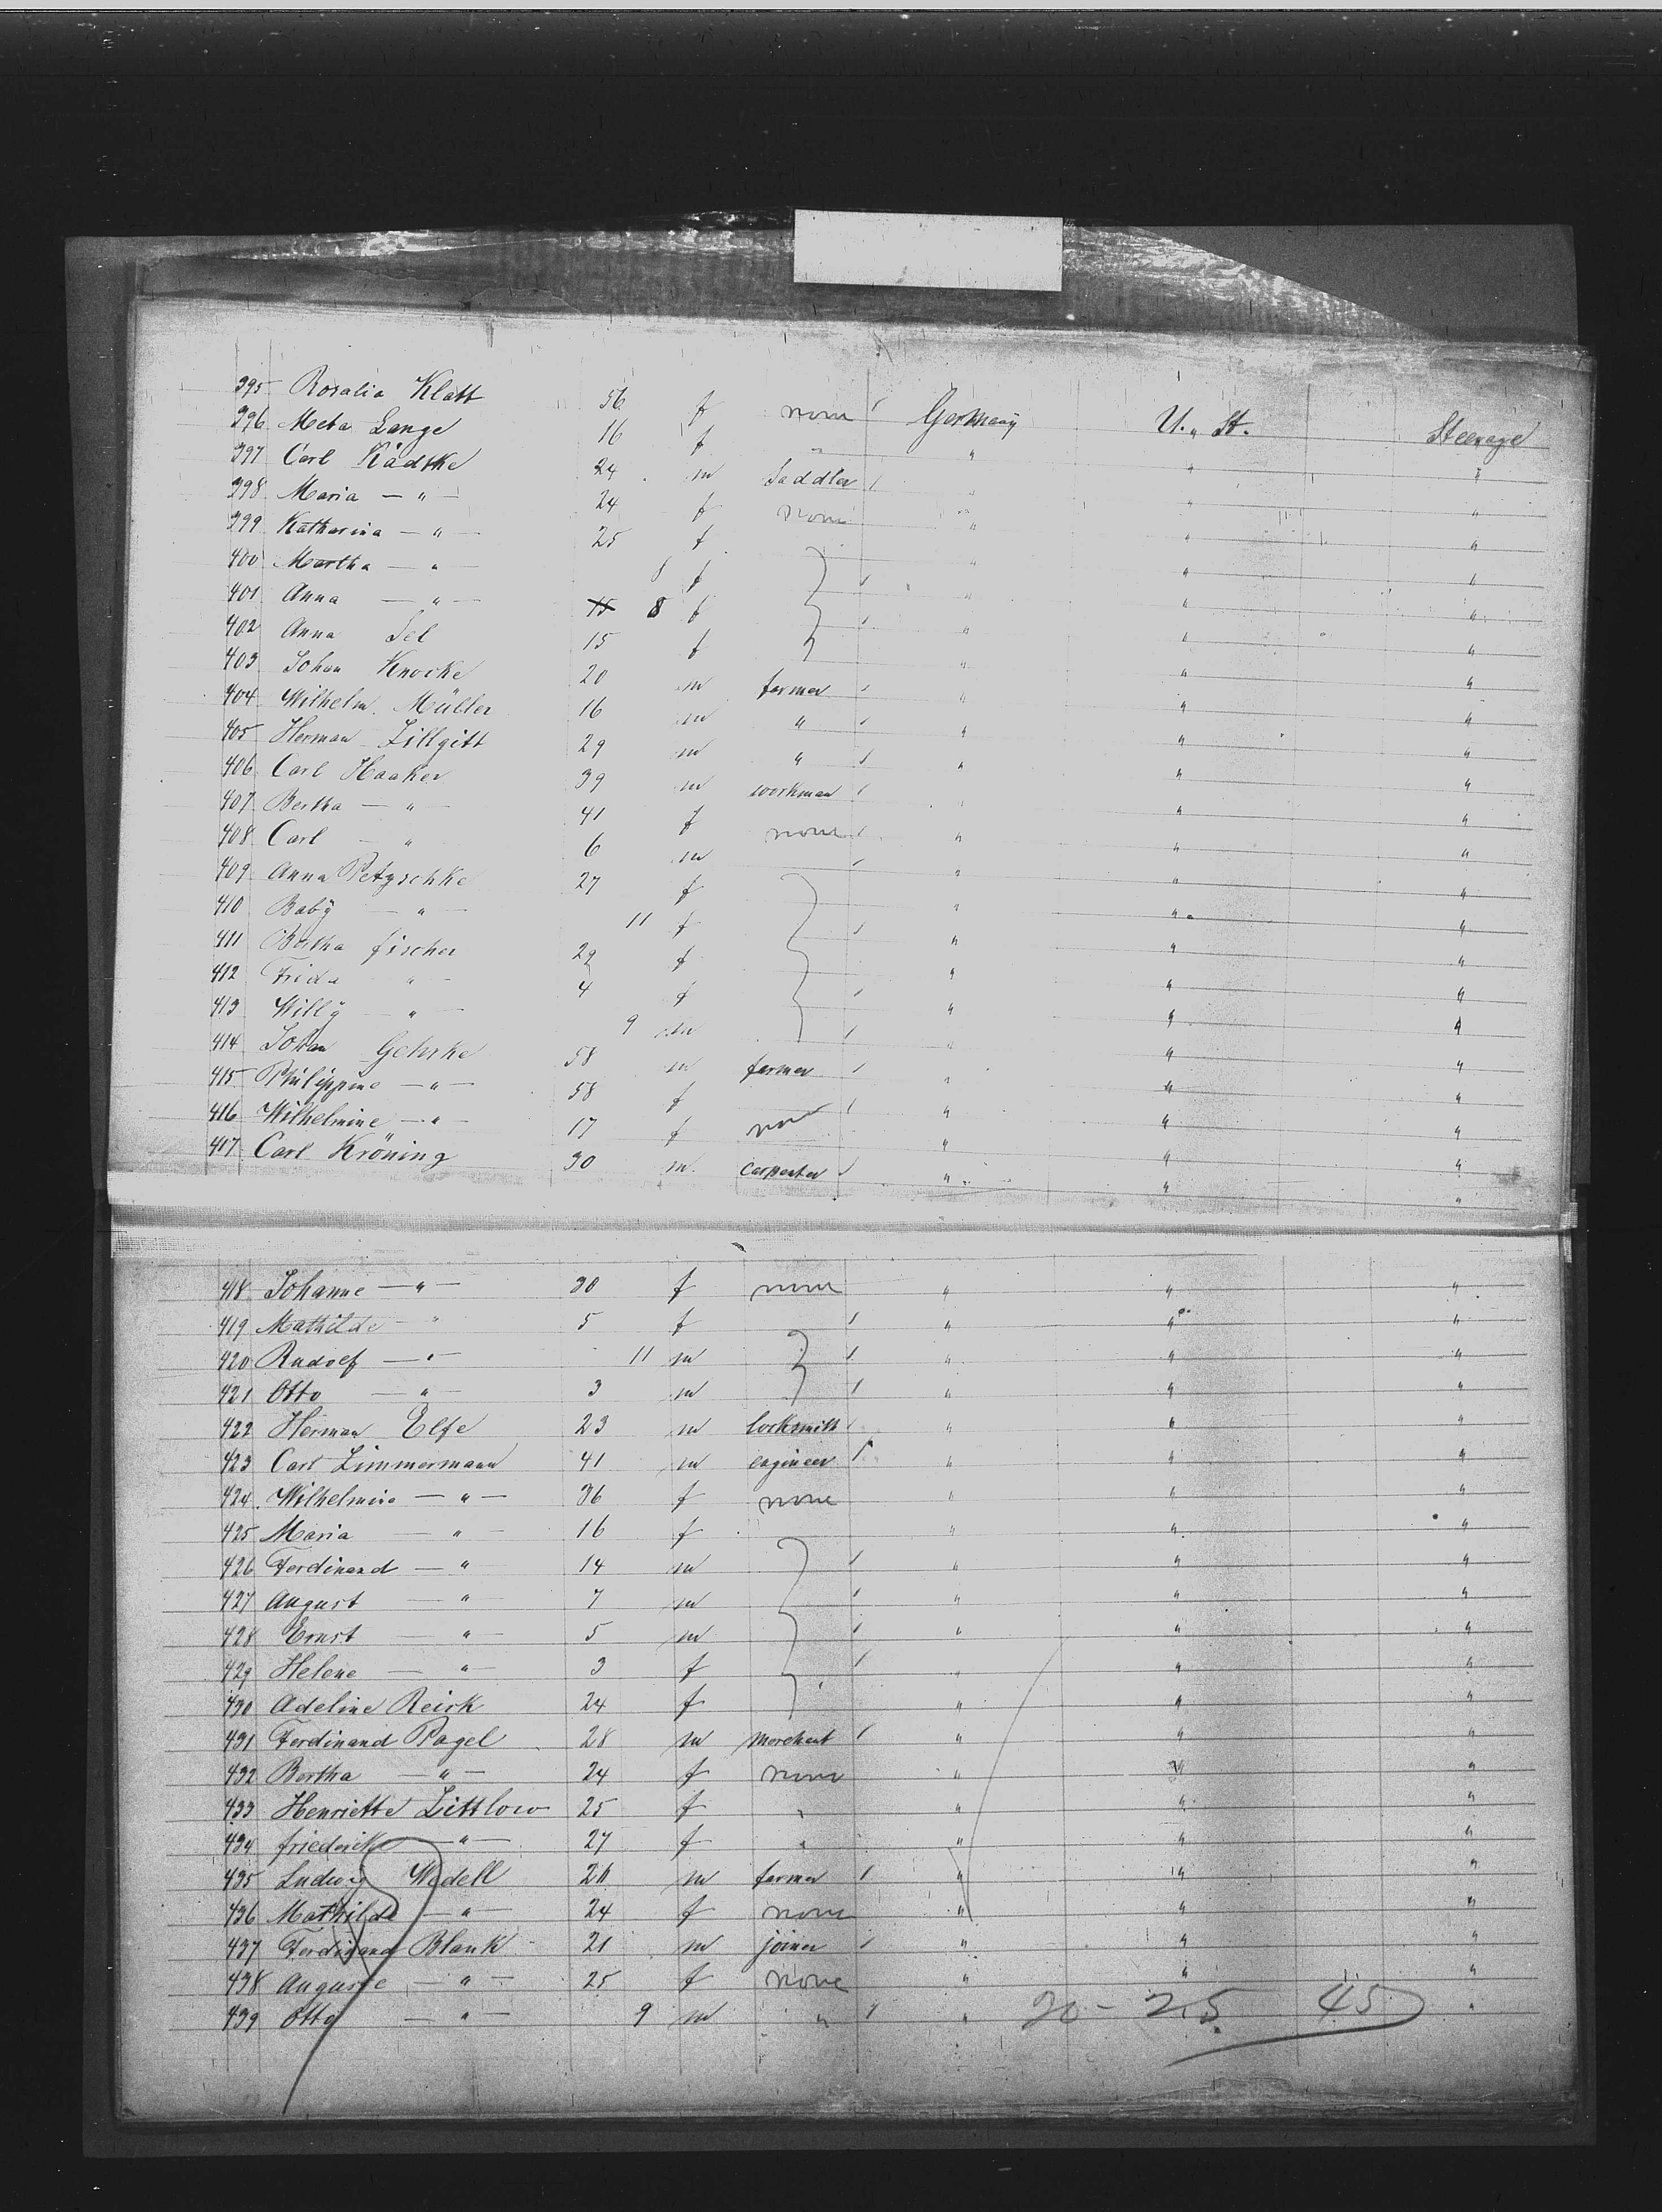 395 Rosalia Klatt 56 f none Germany U. St. Steerage
396 Meta Lange 16 f " " " "
397 Carl Rädtke 24 m Saddler " " "
398 Maria — " — 24 f none " " "
399 Katharina — " — 25 f " " "
400 Martha — " — 8 f " " "
401 Anna — " — 15 8 f " " "
402 Anna Sel 15 f " " "
403 Johan Knocke 20 m farmer " " "
404 Wilhelm Müller 16 m " " " "
405 Herman Zillgitt 29 m " " " "
406 Carl Haaker 39 m workman " " "
407 Bertha — " — 41 f none " " "
408 Carl — " 6 m " " "
409 Anna Petzschke 27 f " " "
410 Baby — " — 11 f " " "
411 Bertha fischer 29 f " " "
412 Frida " — 4 f " " "
413 Willy — " — 9 m " " "
414 Johan Gehrke 58 m farmer " " "
415 Philippine — " — 58 f " " "
416 Wilhelmine — " — 17 f none " " "
417 Carl Kröning 30 m carpenter " " "
418 Johanne — " — 30 f none " " "
419 Mathilde — " 5 f " " "
420 Rudolf — " — 11 m " " "
421 Otto — " — 3 m " " "
422 Herman Elfe 23 m locksmith " " "
423 Carl Zimmermann 41 m engineer " " "
424 Wilhelmine — " — 36 f none " " "
425 Maria — " — 16 f " " "
426 Ferdinand — " 14 m " " "
427 August — " 7 m " " "
428 Ernst — " — 5 m " " "
429 Helene — " — 3 f " " "
430 Adeline Reick 24 f " " "
431 Ferdinand Pagel 28 m merchant " " "
432 Bertha — " — 24 f none " " "
433 Henriette Zittlow 25 f " " " "
434 friederike — " — 27 f " " " "
435 Ludwig Wedell 28 m farmer " " "
436 Mathilde — " — 24 f none " " "
437 Ferdinand Blank 21 m joiner " " "
438 Auguste — " — 25 f none " " "
439 Otto — " — 9 m " " "
20 - 25 45